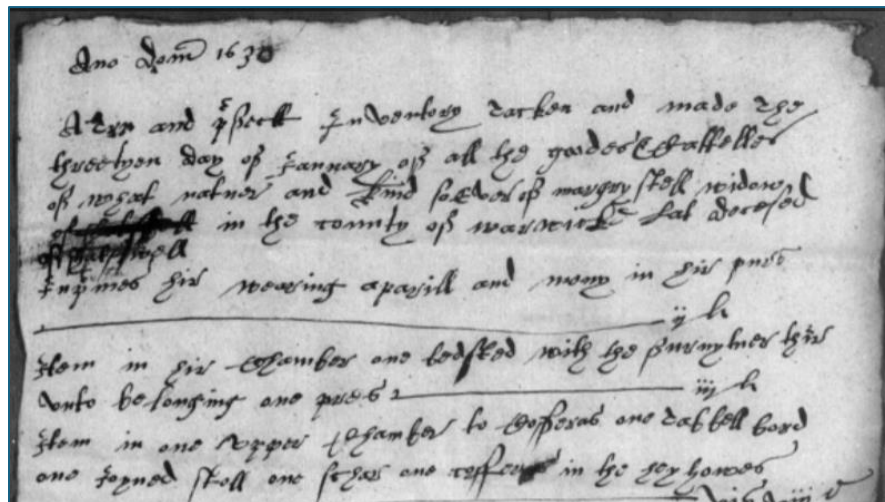 Ano dom 1630
A trw and pfeckt Inventory tacken and made the
threetyen day of January of all the goodes Chattelles
of what natuer and kind soever of margry stell widow
in the county of warwick lat decesed
Inpmes hir wearing aparill and mony in hir purs
ij li
Item in hir Chamber one bedsted with the furnytuer thir
unto belonging one pres iij li
Item in one upper Chamber to Cofferas one tabbell bord
one Joyned stoll one one in the hey howes